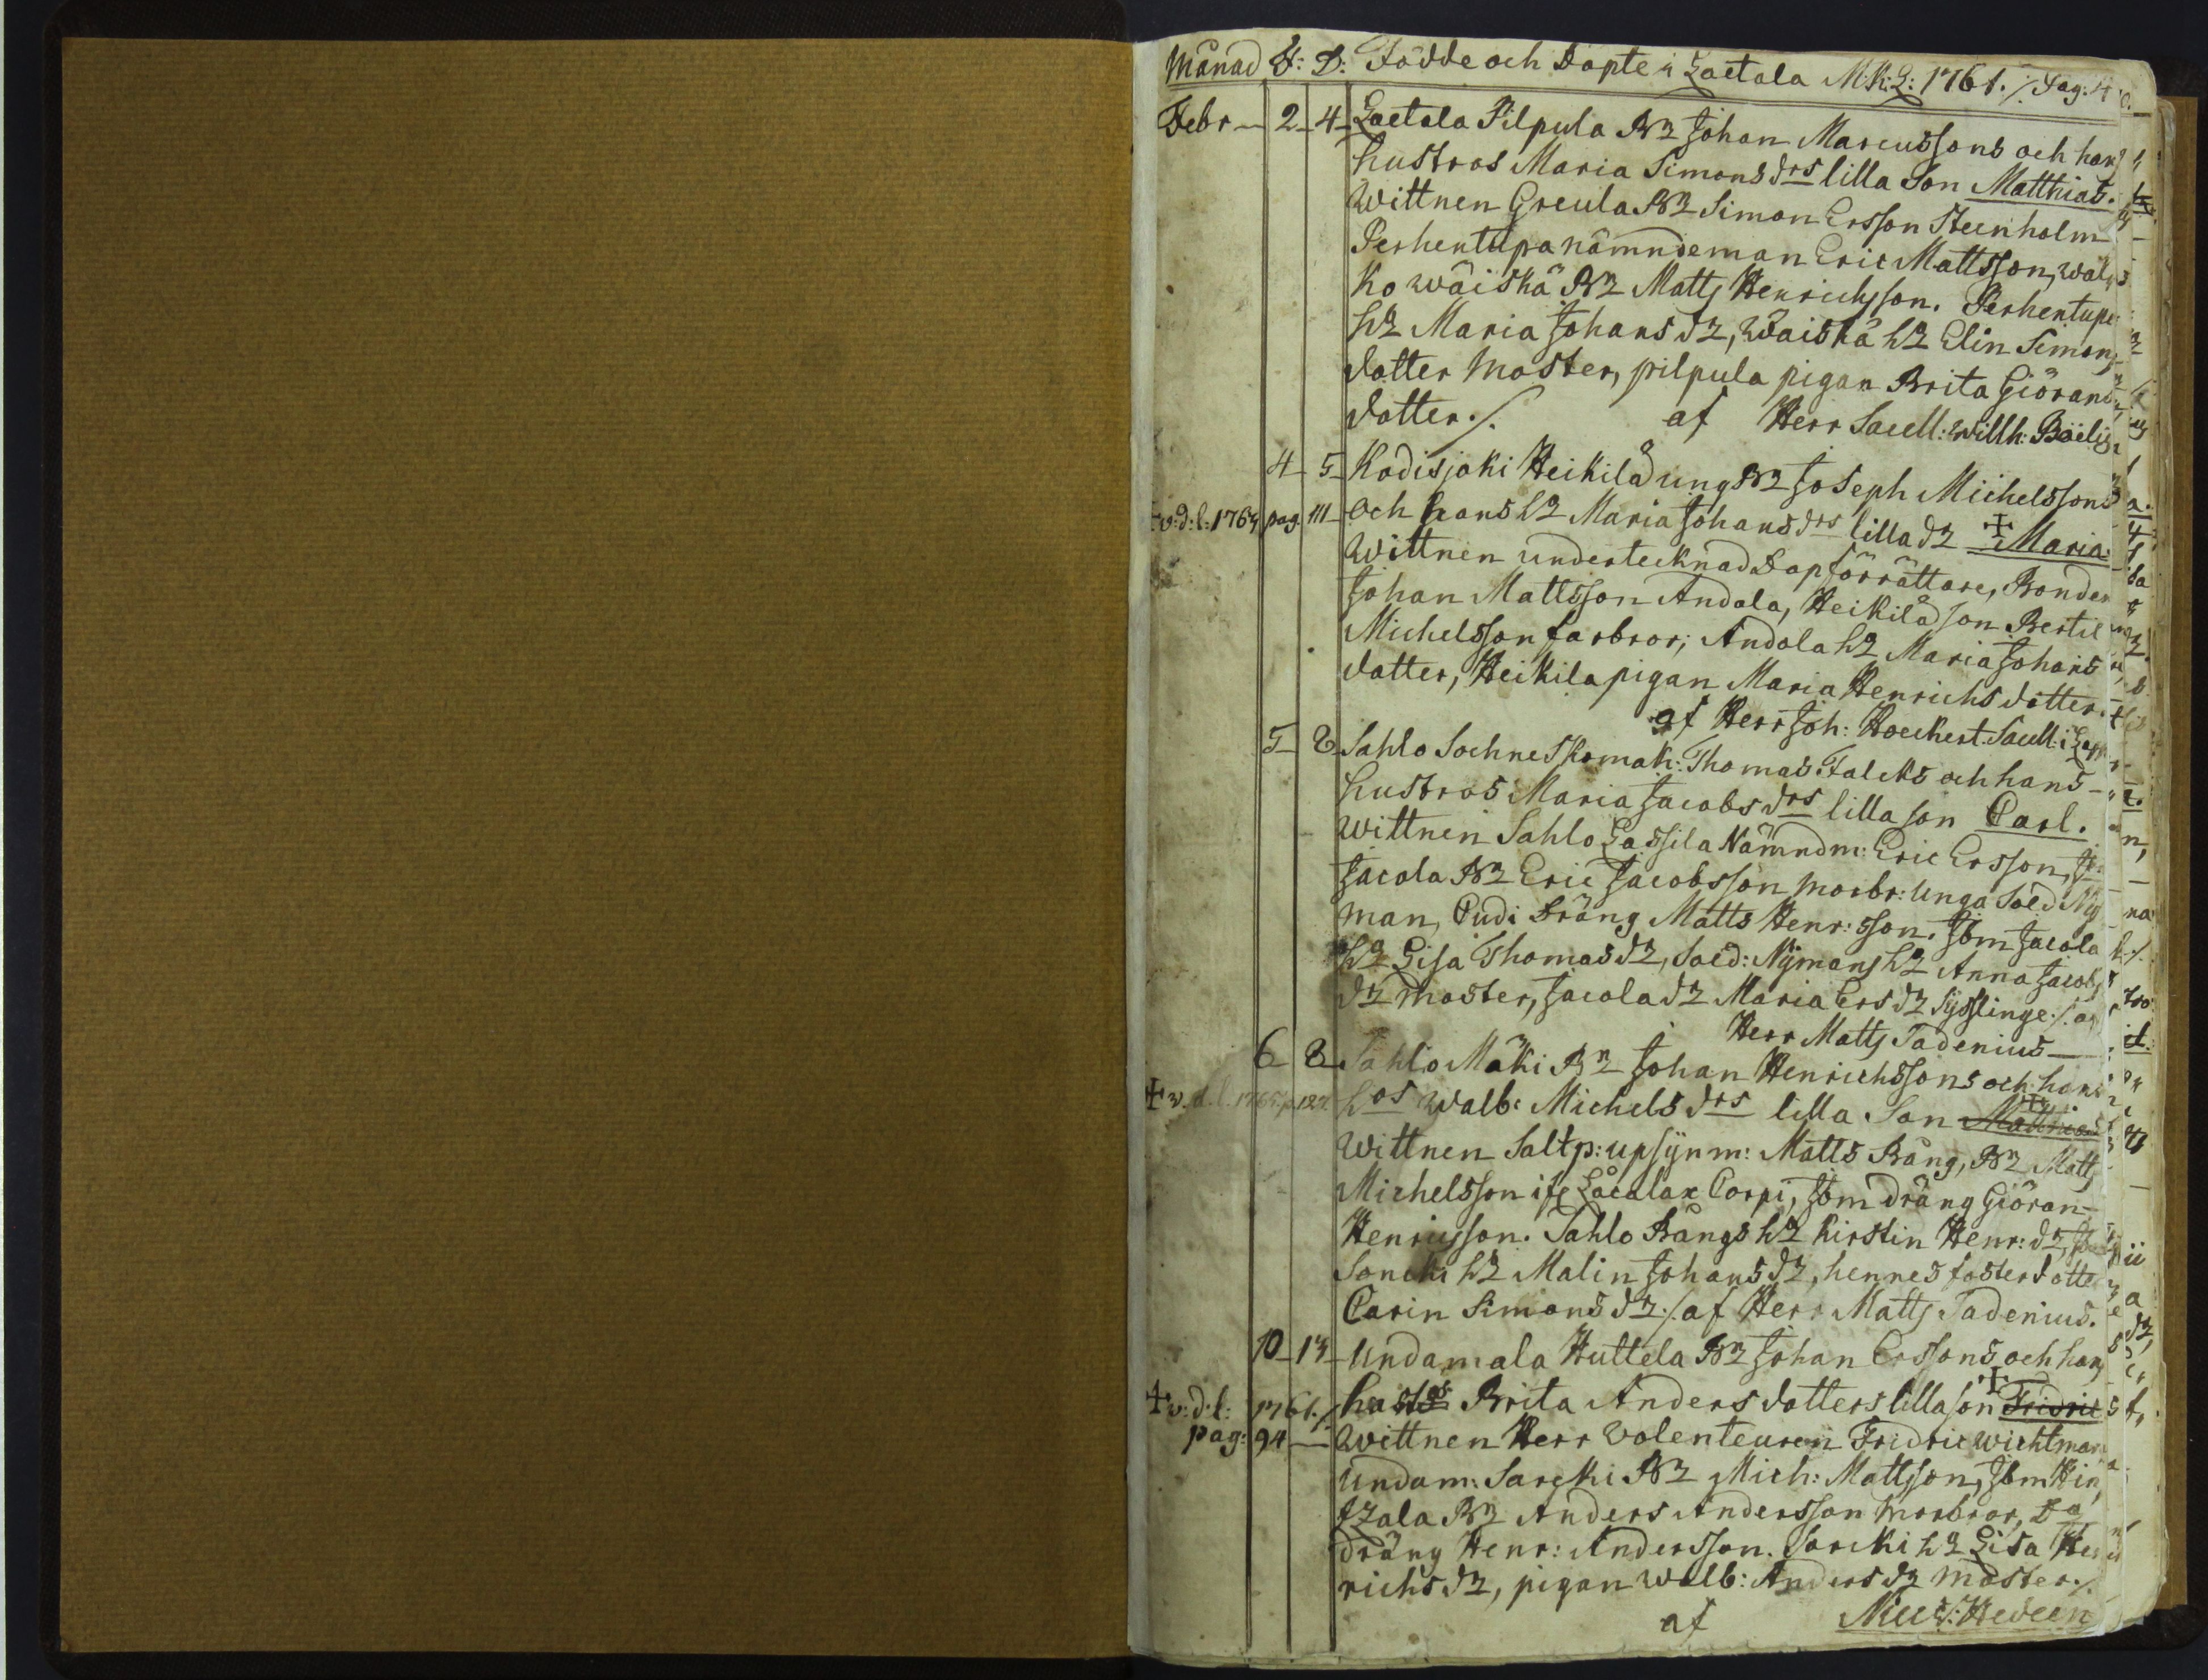 Månad F: D: Födde och Döpte i Laitala M.K.L: 1761. /. Pag. 4
Febr — 2 — 4 — Laitala Pilpula Br Johan Marcussons och hans
hustros Maria Simons drs lilla Son Matthias.
Wittnen Greula Br Simon Ersson Steenholm
Perhentupa nämndeman Eric Mattsson, wal
ko wäiskä Br Matts Henrichsson. Perhentupa
h: Maria Johans dr, Wäiskä h: Elin Simons
dotter moster, pilpula pigan Brita Giörans
dotter ./. af Herr Sacell: Willh:
4 — 5 — Kodisjoki Heikilä ung Br Joseph Michelssons
† v: d: l: 1764 pag. 111 — och hans h: Maria Johans drs lilla dr † Maria.
Wittnen undertecknad Dopförrättare, Bonden
Johan Mattsson Andola, Heikilä son Bertil
Michelsson farbror; Andola h: Maria Johans
dotter, Heikila pigan Maria Henrichs dotter.
af Herr Joh: Hoeckert Sacell: i Lapp
5 — 8 Sahlo Sochne Skomak: Thomas Falcks och hans
hustros Maria Jacobs drs lilla son Carl.
Wittnen Sahlo Lassila Nämndm: Eric Ersson,
Jacola Br Eric Jacobsson morbr: Unga Sold Ny
man, Pudi dräng Matts Henr: sson. Jbm Jacola
h: Lisa Thomas dr, Sold: Nymans h: Anna Jacobs
dr moster, Jacola dr Maria Ers dr Sysslinge ./. af
Herr Matts Tadenius —
6 8 Sahlo Mäki Br Johan Henrichssons och hans
† v. d. l. 1765 p. 127. hos Walb: Michels drs lilla Son † Matthias
Wittnen Saltp: upsynm: Matts Bång, Br Matts
Michelsson if Lacalax Corpi, Jbm dräng Giöran
Henricsson. Sahlo Bångs h: Kirstin Henr: dr,
Soncki h: Malin Johans dr, hennes fosterdotter
Carin Simons dr ./. af Herr Matts Tadenius.
10 — 13 — Undamala Huttela Br Johan Erssons och hans
† v: d: l: 1761. /. hustrs Brita Anders dotters lilla son † Fridric
pag: 94 — Wittnen Herr Volenteuren Fridric Wichtman
Undam: Sarcki Br Mich: Mattsson, Jbm Hin
tzala Br Anders Andersson morbror,
dräng Henr: Andersson. Sarcki h: Lisa Hen
richs dr, pigan Walb: Anders dr moster. /.
af Nils: Hedeen